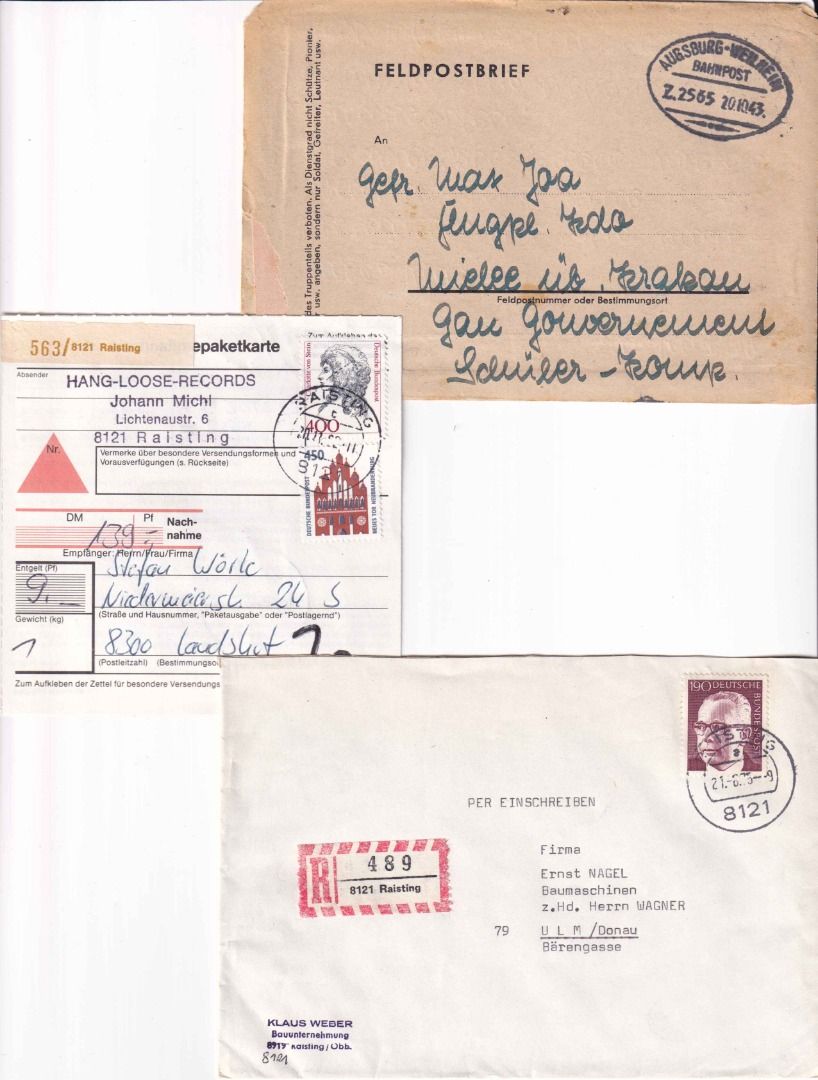 FELDPOSTBRIEF
AUGSBURG-WEILHEIM
BAHNPOST
Z.2565 20.10.43.
des Truppenteils verboten. Als Dienstgrad nicht Schütze, Pionier,
usw. angeben, sondern nur Soldat, Gefreiter, Leutnant usw.
An
Gefr. Max
Feldpostnummer oder Bestimmungsort
üb. Krakau
Gen Gouvernement
Schüler-Komp.
563/ 8121 Raisting
epaketkarte
Zum Aufkleben der
Absender
HANG-LOOSE-RECORDS
Johann Michl
Lichtenaustr. 6
8121 Raisting
Nr.
Vermerke über besondere Versendungsformen und
Vorausverfügungen (s. Rückseite)
Deutsche Bundespost
400
RAISTING
c
8121
450
DEUTSCHE BUNDESPOST
NEUES TOR NEUBRANDENBURG
DM Pf
Nach-
nahme
139,-
Empfänger: Herrn/Frau/Firma
Entgelt (Pf)
9,-
Stefan Wörle
24 S
Gewicht (kg)
(Straße und Hausnummer, "Paketausgabe" oder "Postlagernd")
1
8300 Landshut
(Postleitzahl) (Bestimmungso
Zum Aufkleben der Zettel für besondere Versendungs
190 DEUTSCHE
BUNDESPOST
ISTING
a
8121
PER EINSCHREIBEN
R
489
8121 Raisting
Firma
Ernst NAGEL
Baumaschinen
z.Hd. Herrn WAGNER
79 U L M /Donau
Bärengasse
KLAUS WEBER
Bauunternehmung
8919 Raisting / Obb.
8121